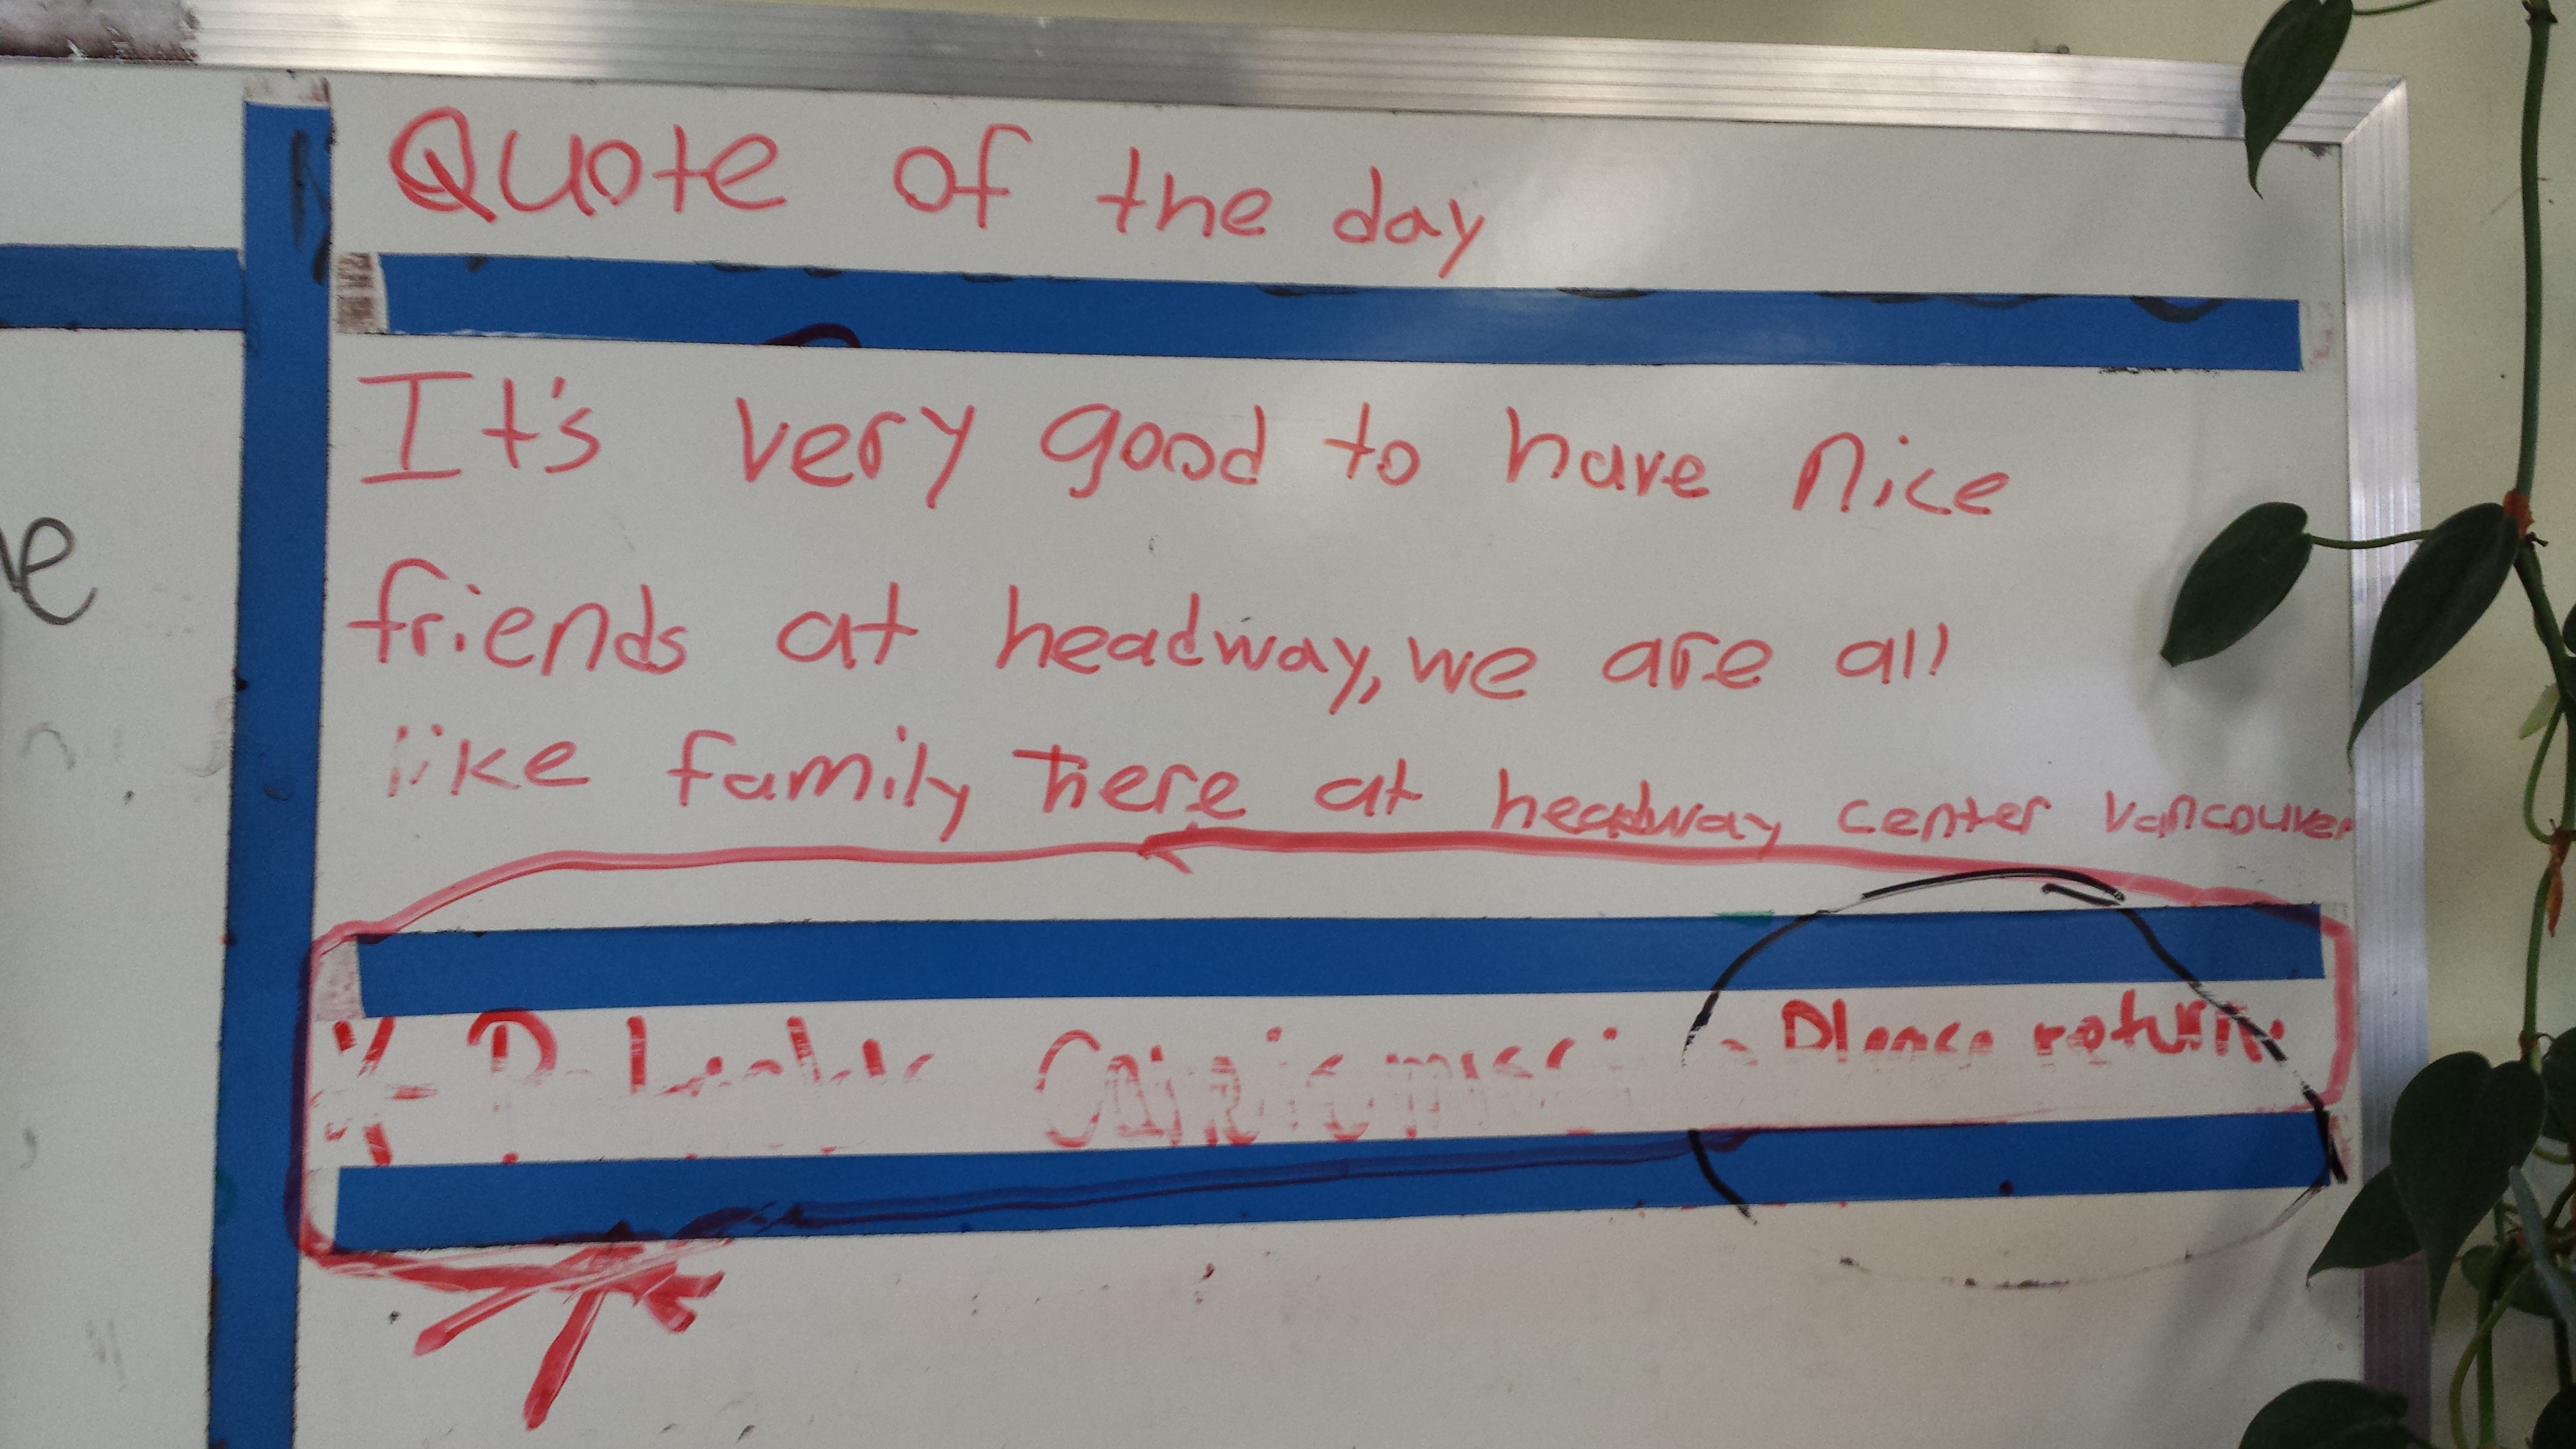 Quote of the day
It's very good to have nice
friends at headway, we are all
like family here at headway center Vancouver
Please return